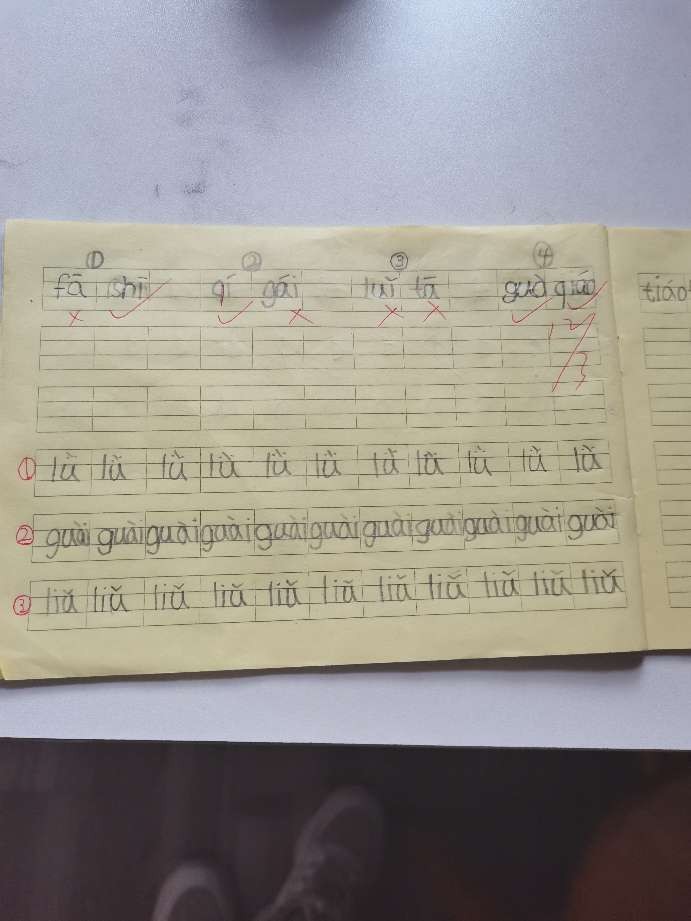 ① ② ③ ④
fā shī qí gái tā guò qiáo tiáo
① lǜ lǜ lǜ lǜ lǜ lǜ lǜ lǜ lǜ lǜ lǜ
② guài guài guài guài guài guài guài guài guài guài guài
③ liǔ liǔ liǔ liǔ liǔ liǔ liǔ liǔ liǔ liǔ liǔ